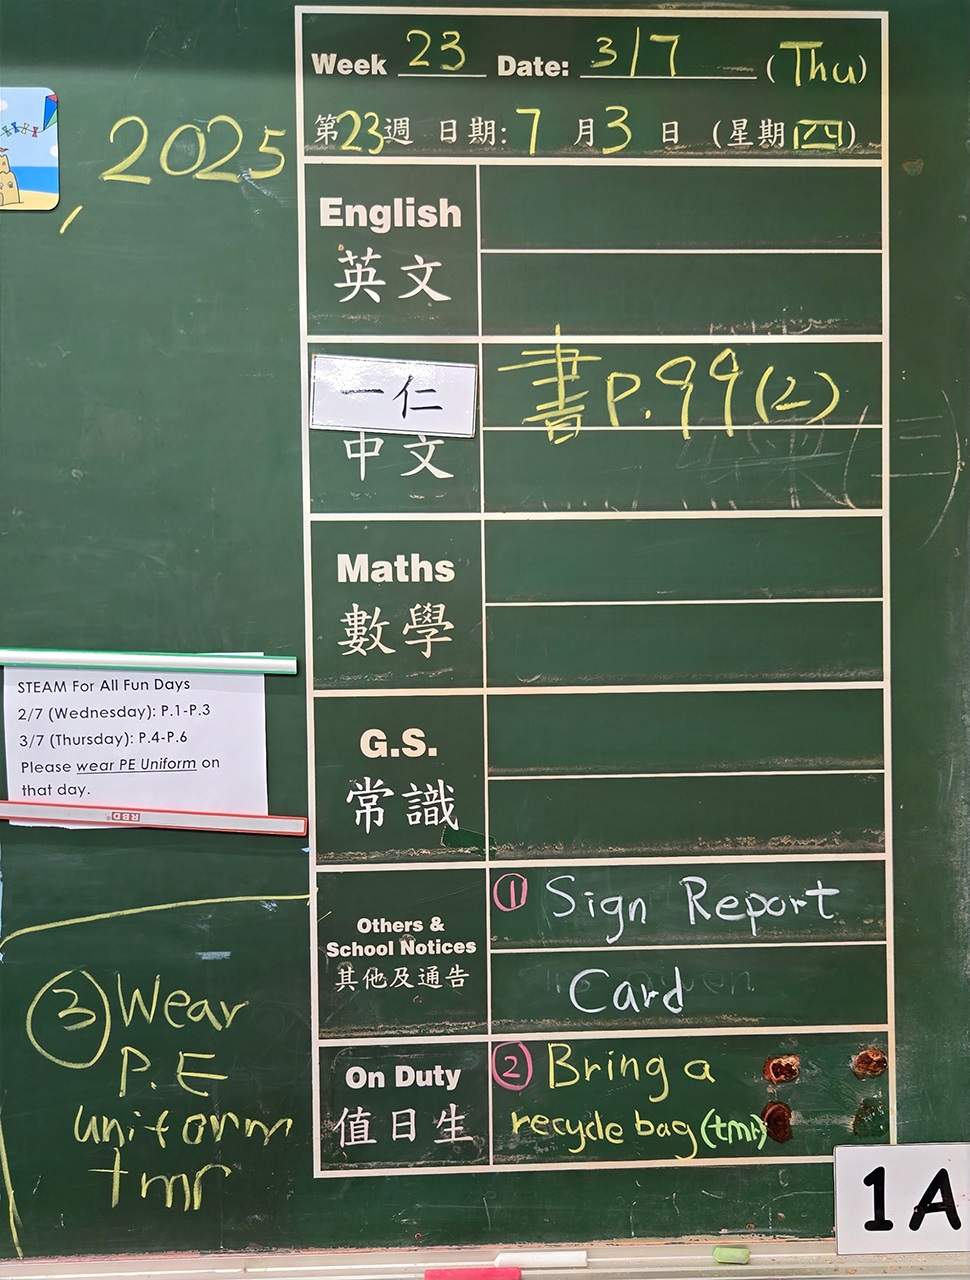 2025
Week 23 Date: 3/7 (Thu)
第23週 日期: 7 月 3 日 (星期四)
English
英文
一仁
中文
書 P.99(2)
Maths
數學
G.S.
常識
STEAM For All Fun Days
2/7 (Wednesday): P.1-P.3
3/7 (Thursday): P.4-P.6
Please wear PE Uniform on
that day.
RBD
Others &
School Notices
其他及通告
① Sign Report
Card
On Duty
值日生
② Bring a
recycle bag (tmr)
③ Wear
P.E
uniform
tmr
1A